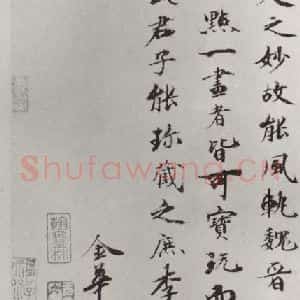 之妙故能風軌魏晉
點一畫者皆可寶玩而
君子能珍藏之庶李
金華
Shufawang.CN